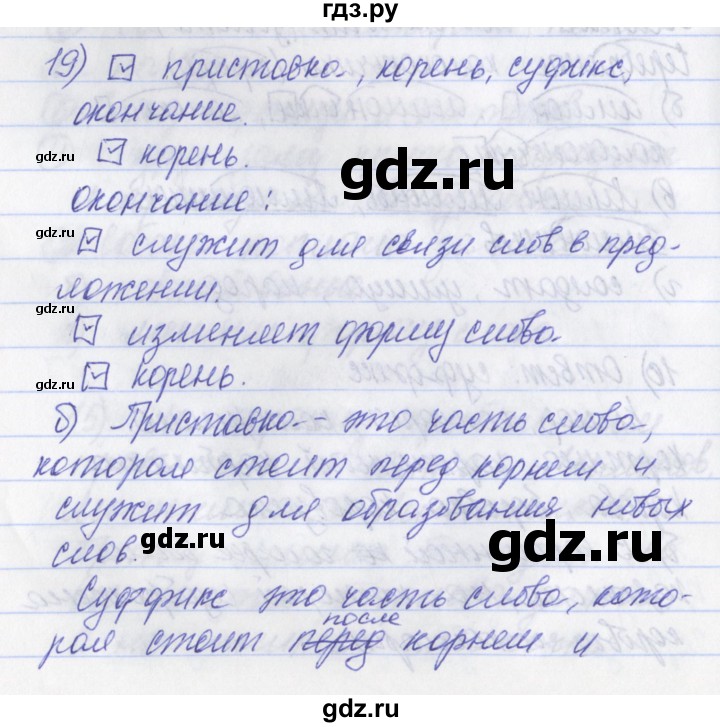 гдз.ру
19) ☑ приставка, корень, суфикс,
окончание.
gdz.ru ☑ корень. gdz.ru
окончание:
gdz.ru ☑ служит для связи слов в пред-
ложении.
gdz.ru ☑ изменяет форму слова.
gdz.ru ☑ корень.
б) Приставка - это часть слова,
которая стоит перед корнем и
служит для образования новых
слов. gdz.ru gdz.ru
Суффикс это часть слова, кото-
после
gdz.ru рая стоит перед корнем и
gdz.ru gdz.ru